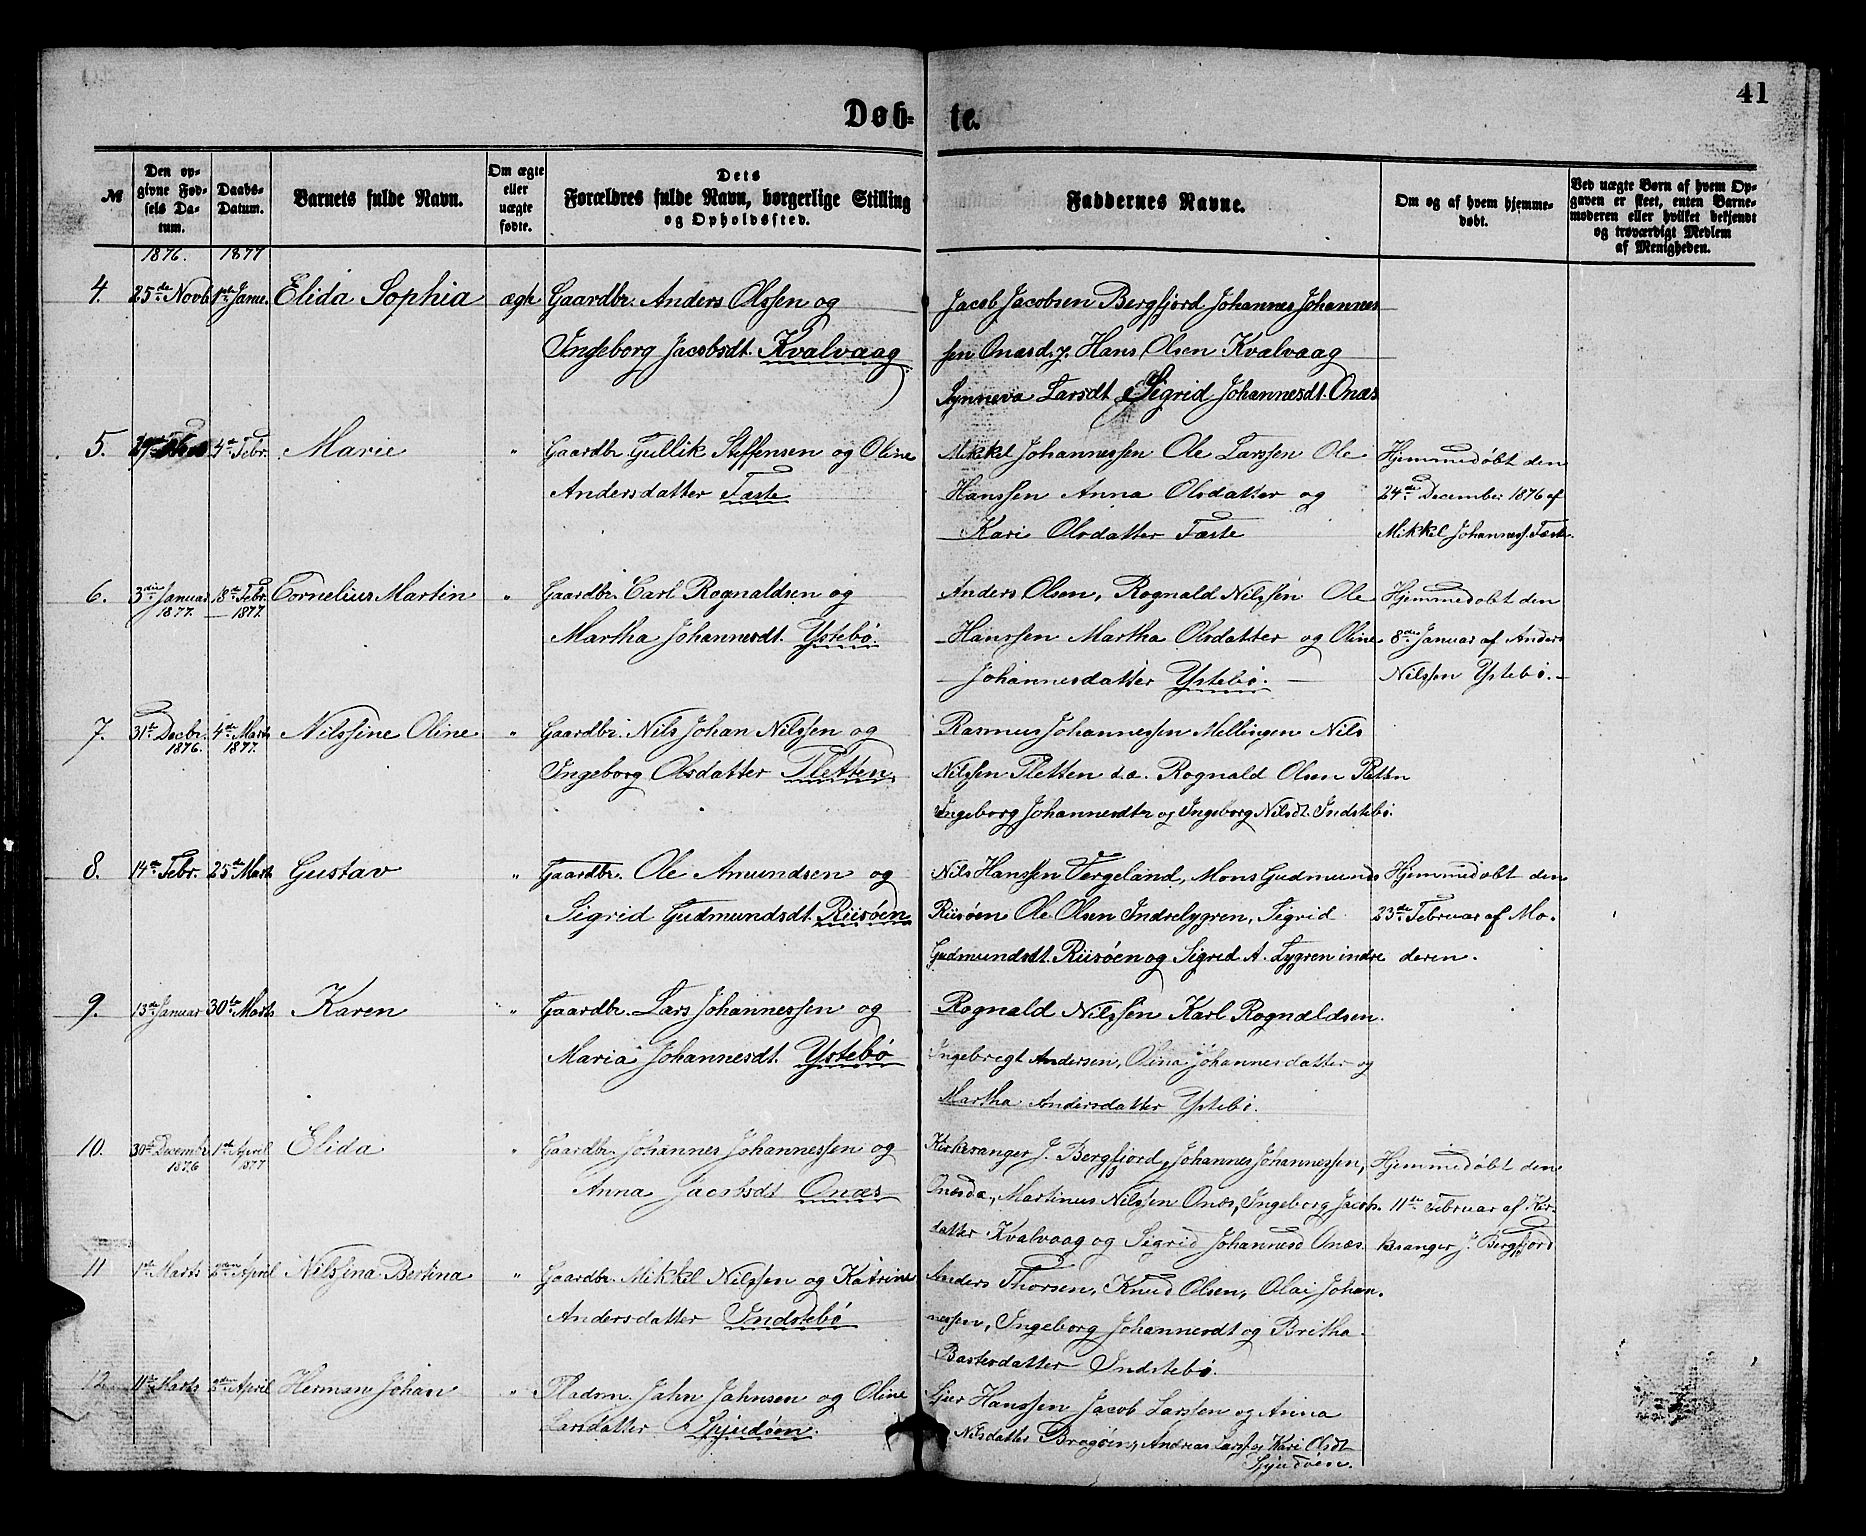 41
Døb= te.
№
Den opgivne Fødsels Datum.
Daabs-Datum.
Barnets fulde Navn.
Om ægte eller uægte fødte.
Dets Forældres fulde Navn, borgerlige Stilling og Opholdssted.
Faddernes Navne.
Om og af hvem hjemmedøbt.
Ved uægte Børn af hvem Opgaven er skeet, enten Barnemoderen eller hvilket bekjendt og troværdigt Medlem af Menigheden.
1876. 1877
4. 25de Novb 1ste Janu. Elida Sophia ægte Gaardbr. Anders Olssen og
Ingeborg Jacobsdt. Kvalvaag
Jacob Jacobsen Bergfjord Johannes Johannes
sen Onæsd. y. Hans Olsen Kvalvaag
Synneva Larsdt Sigrid Johannesdt. Onæs
5. 4de Febr. Marie " Gaardbr Gullik Steffensen og Oline
Andersdatter Fæste
Mikkel Johannessen Ole Larssen Ole
Hanssen Anna Olsdatter og
Kari Olsdatter Fæste
Hjemmedøbt den
24de December 1876 af
Mikkel Johanness. Fæste.
6. 3die Januar 1877. 18de Febr. 1877. Cornelius Martin " Gaardbr. Carl Rognaldsen og
Martha Johannesdt. Ystebø.
Anders Olsen, Rognald Nilssen Ole
Hanssen Martha Olsdatter og Oline
Johannesdatter Ystebø.
Hjemmedøbt den
8de Januar af Anders
Nilssen Ystebø.
7. 31te Decbr. 1876. 4de Marts 1877. Nilssine Oline " Gaardbr. Nils Johan Nilssen og
Ingeborg Olsdatter Fletten.
Rasmus Johannessen Mellingen Nils
Nilssen Fletten d.æ. Rognald Olsen Fletten
Ingeborg Johannesdtr og Ingeborg Nilsdt. Indstebø.
8. 14de Febr. 25de Marts Gustav " Gaardbr. Ole Amundsen og
Sigrid Gudmundsdt. Riisøen
Nils Hanssen Vergeland, Mons Gudmunds
Riisøen Ole Olsen Indrelygren, Sigrid
Gudmundsdt. Riisøen og Sigrid A. Lygren indre
Hjemmedøbt den
23de Februar af Mo-
deren.
9. 13de Januar 30te Marts Karen " Gaardbr. Lars Johannessen og
Maria Johannesdt. Ystebø
Rognald Nilssen Karl Rognaldsen.
Ingebregt Andersen, Olina Johannesdatter og
Martha Andersdatter Ystebø.
10. 30te Decembr 1876 1ste April 1877 Elida " Gaardbr. Johannes Johannessen og
Anna Jacobsdt Onæs
Kirkesanger J. Bergfjord, Johannes Johannessen,
Onæs d.æ., Martinus Nilssen Onæs, Ingeborg Jacobs-
datter Kvalvaag og Sigrid Johannesd Onæs.
Hjemmedøbt den
11te Februar af Kir-
kesanger J. Bergfjord
11 1ste Marts 2den April Nilssina Bertina " Gaardbr. Mikkel Nilssen og Katrine
Andersdatter Indstebø
Anders Thorsen, Knud Olsen, Olai Johan-
nessen, Ingeborg Johannesdt og Britha
Bastesdatter Indstebø.
12. 11te Marts 2den April Herman Johan " Pladsm. Jahn Jahnsen og Oline
Larsdatter Spjudøen.
Sjer Hanssen Jacob Larssen og Anna
Nilsdatter Bragøen, Andreas Larss og Kari Olsdt
Spjudøen.